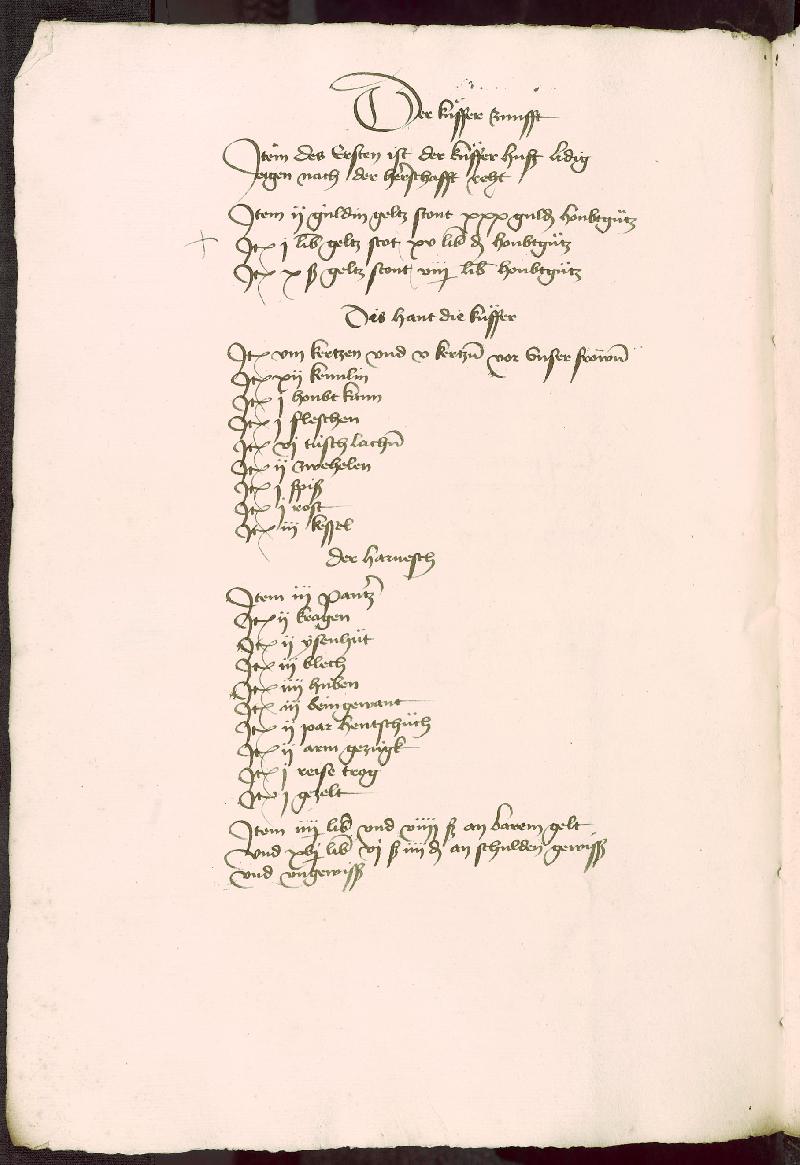 Der küffer zunfft
Item des Ersten ist der küffer huß lidig
eigen nach der herschafft reht
Item ij guldin geltz stont xxx guld houbtgütz
Itē j lib geltz stot xv lib đ houbtgütz
Itē x ß geltz stont viij lib houbtgütz
Dis hant die küffer
Itē viij kertzen vnd v kertzn̄ vor vnser frowen
Itē xij kennlin
Itē j houbt kann
Itē j fleschen
Itē vj tüschlachn̄
Itē ij zwehelen
Itē j spiß
Itē j rost
Itē iij kessel
der harnesch
Item iij pantz
Itē ij kragen
Itē ij ysenhüt
Itē iij blech
Itē iiij huben
Itē iij beingewant
Itē ij par hentschüch
Itē ij arm gezügk
Itē j reise trog
Itē j gezelt
Item iiij lib vnd viiij ß an barem gelt
vnd xvj lib vj ß iiij đ an schulden gewiss
vnd vngewiss